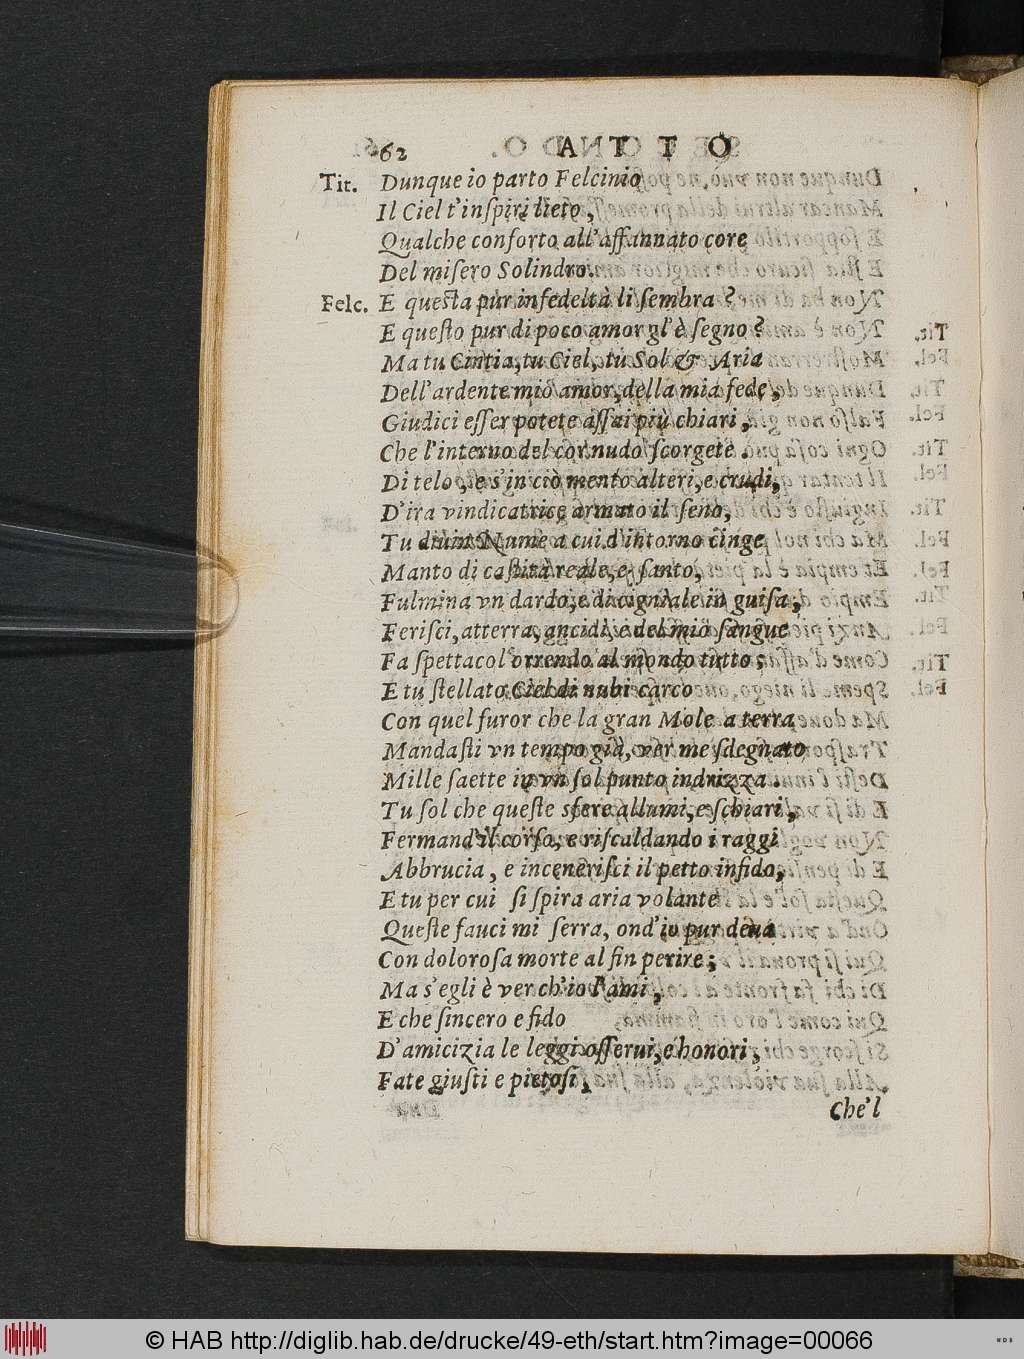 62 ATTO
Tit. Dunque io parto Felcinio
Il Ciel t'inſpiri lieto,
Qualche conforto all'affannato core
Del miſero Solindro.
Felc. E queſta pur infedeltà li ſembra?
E queſto pur di poco amor gl'è ſegno?
Ma tu Cintia, tu Ciel, tu Sol & Aria
Dell'ardente mio amor, della mia fede,
Giudici eſſer potete aſſai più chiari,
Che l'interno del cor nudo ſcorgete.
Ditelo, e s'in ciò mento alteri, e crudi,
D'ira vindicatrice armato il ſeno,
Tu Nume a cui d'intorno cinge
Manto di caſtità reale, e ſanto,
Fulmina vn dardo, e di cignale in guiſa,
Feriſci, atterra, ancidi, e del mio ſangue
Fa ſpettacol'orrendo al mondo tutto;
E tu ſtellato Ciel di nubi carco
Con quel furor che la gran Mole a terra
Mandaſti vn tempo già, ver me ſdegnato
Mille ſaette in vn ſol punto indrizza.
Tu ſol che queſte sfere allumi, e ſchiari,
Fermand'il corſo, e riſcaldando i raggi
Abbrucia, e inceneriſci il petto infido,
E tu per cui ſi ſpira aria volante
Queſte fauci mi ſerra, ond'io pur deua
Con doloroſa morte al fin perire;
Ma s'egli è ver ch'io l'ami,
E che ſincero e fido
D'amicizia le leggi oſſerui, e honori,
Fate giuſti e pietoſi,
Che'l
© HAB http://diglib.hab.de/drucke/49-eth/start.htm?image=00066